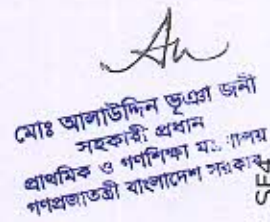 মোঃ আলাউদ্দিন ভূঞা জনী
সহকারী প্রধান
প্রাথমিক ও গণশিক্ষা
গণপ্রজাতন্ত্রী বাংলাদেশ সরকার